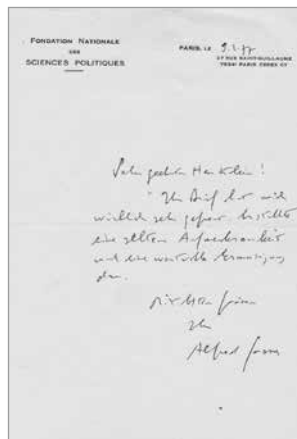 FONDATION NATIONALE
DES
SCIENCES POLITIQUES
PARIS, LE 9.1.77
27 RUE SAINT-GUILLAUME
75341 PARIS CEDEX 07
Sehr geehrter Herr Klein!
Ihr Brief hat mich
wirklich sehr gefreut. Es
eine seltene Aufmerksamkeit
und eine wertvolle Ermutigung
Mit besten Grüssen
Ihr
Alfred Grosser